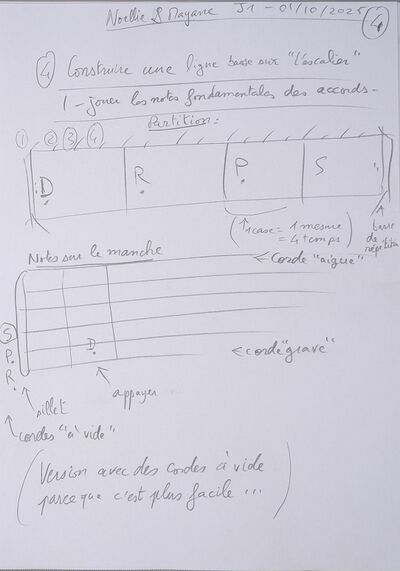 Noellie & Mayane J1 - 01/10/2025 4
4 Construire une ligne basse sur "l'escalier"
1 - jouer les notes fondamentales des accords -
Partition :
1 2 3 4
D R P S
(↑ 1 case = 1 mesure = 4 temps)
barre de répétition
Notes sur le manche
← corde "aigue"
S
P
R
D
← corde "grave"
sillet
appuyer
cordes "à vide"
(Version avec des cordes à vide
parce que c'est plus facile ...)